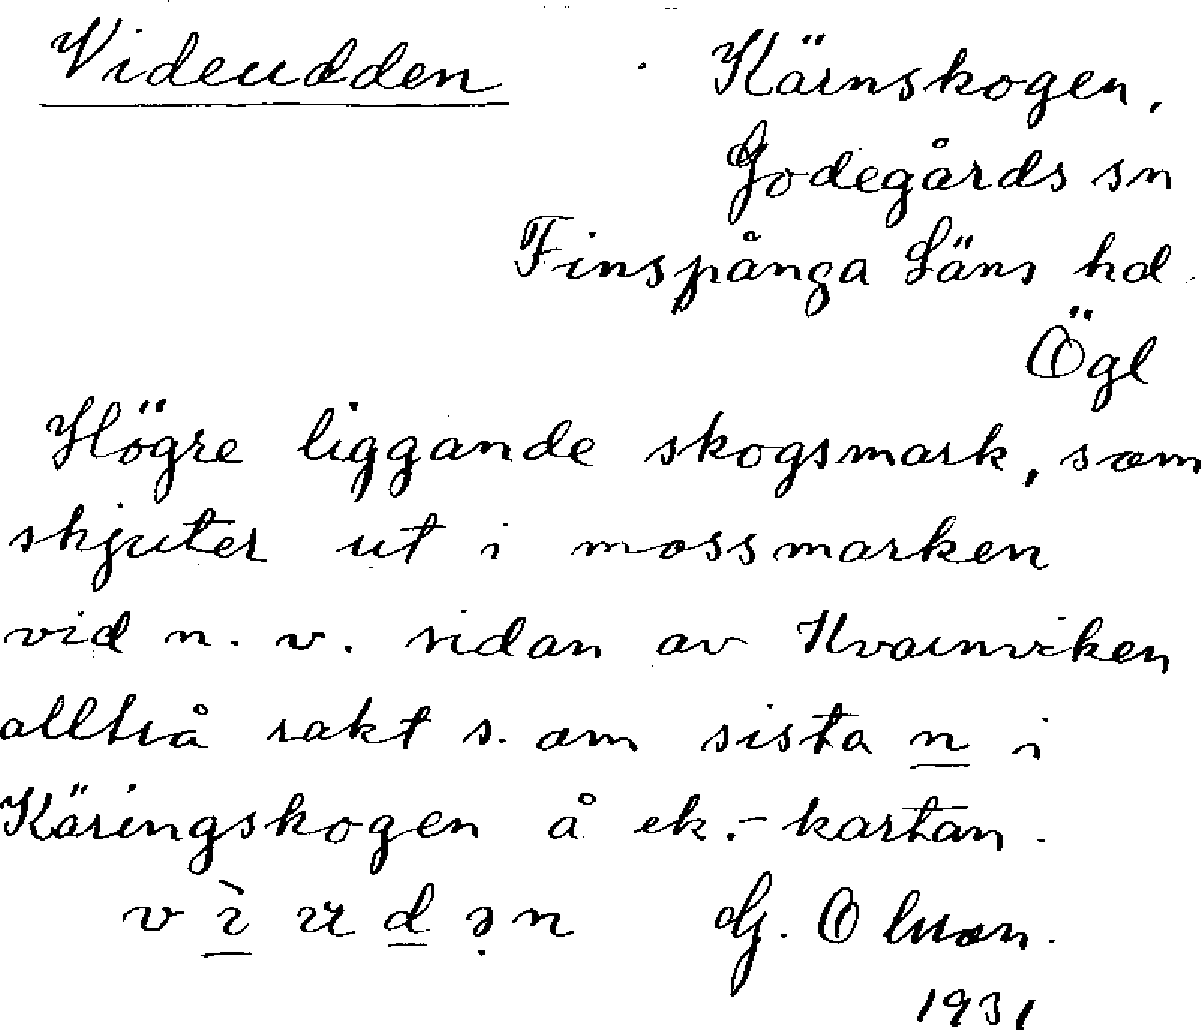 Videudden
Kärnskogen,
Godegårds sn
Finspånga Läns hd.
Ögl
Högre liggande skogsmark, som
skjuter ut i mossmarken
vid n. v. sidan av Kvarnviken
alltså rakt s. om sista n i
Käringskogen å ek.-kartan.
G. Olsson.
1931